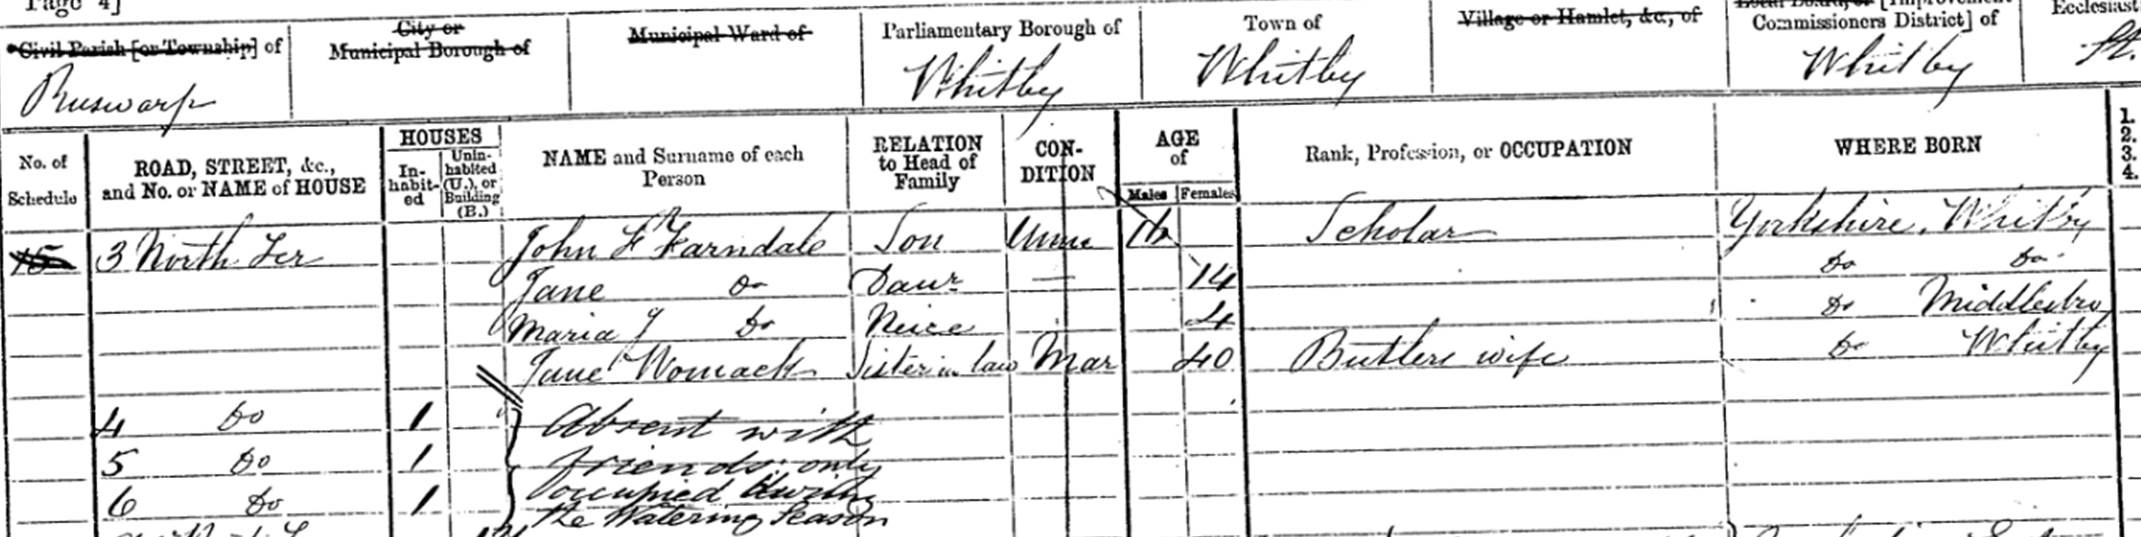 Page 4]
Civil Parish [or Township] of
City or Municipal Borough of
Municipal Ward of
Parliamentary Borough of
Town of
Village or Hamlet, &c., of
[Improvement Commissioners District] of
Ecclesiast
Ruswarp
Whitby
Whitby
Whitby
St.
No. of Schedule
ROAD, STREET, &c., and No. or NAME of HOUSE
HOUSES
In-habit-ed
Unin-habited (U.), or Building (B.)
NAME and Surname of each Person
RELATION to Head of Family
CON-DITION
AGE of
Males
Females
Rank, Profession, or OCCUPATION
WHERE BORN
1.
2.
3.
4.
15 3 North Ter John F Farndale Son Unm 16 Scholar Yorkshire, Whitby
Jane Do Daur — 14 Do Do
Maria J Do Neice 4 Do Middlesbro
Jane Womack Sister in law Mar 40 Butlers wife Do Whitby
4 Do 1 Absent with
5 Do 1 friends only
6 Do 1 occupied during
the Watering Season